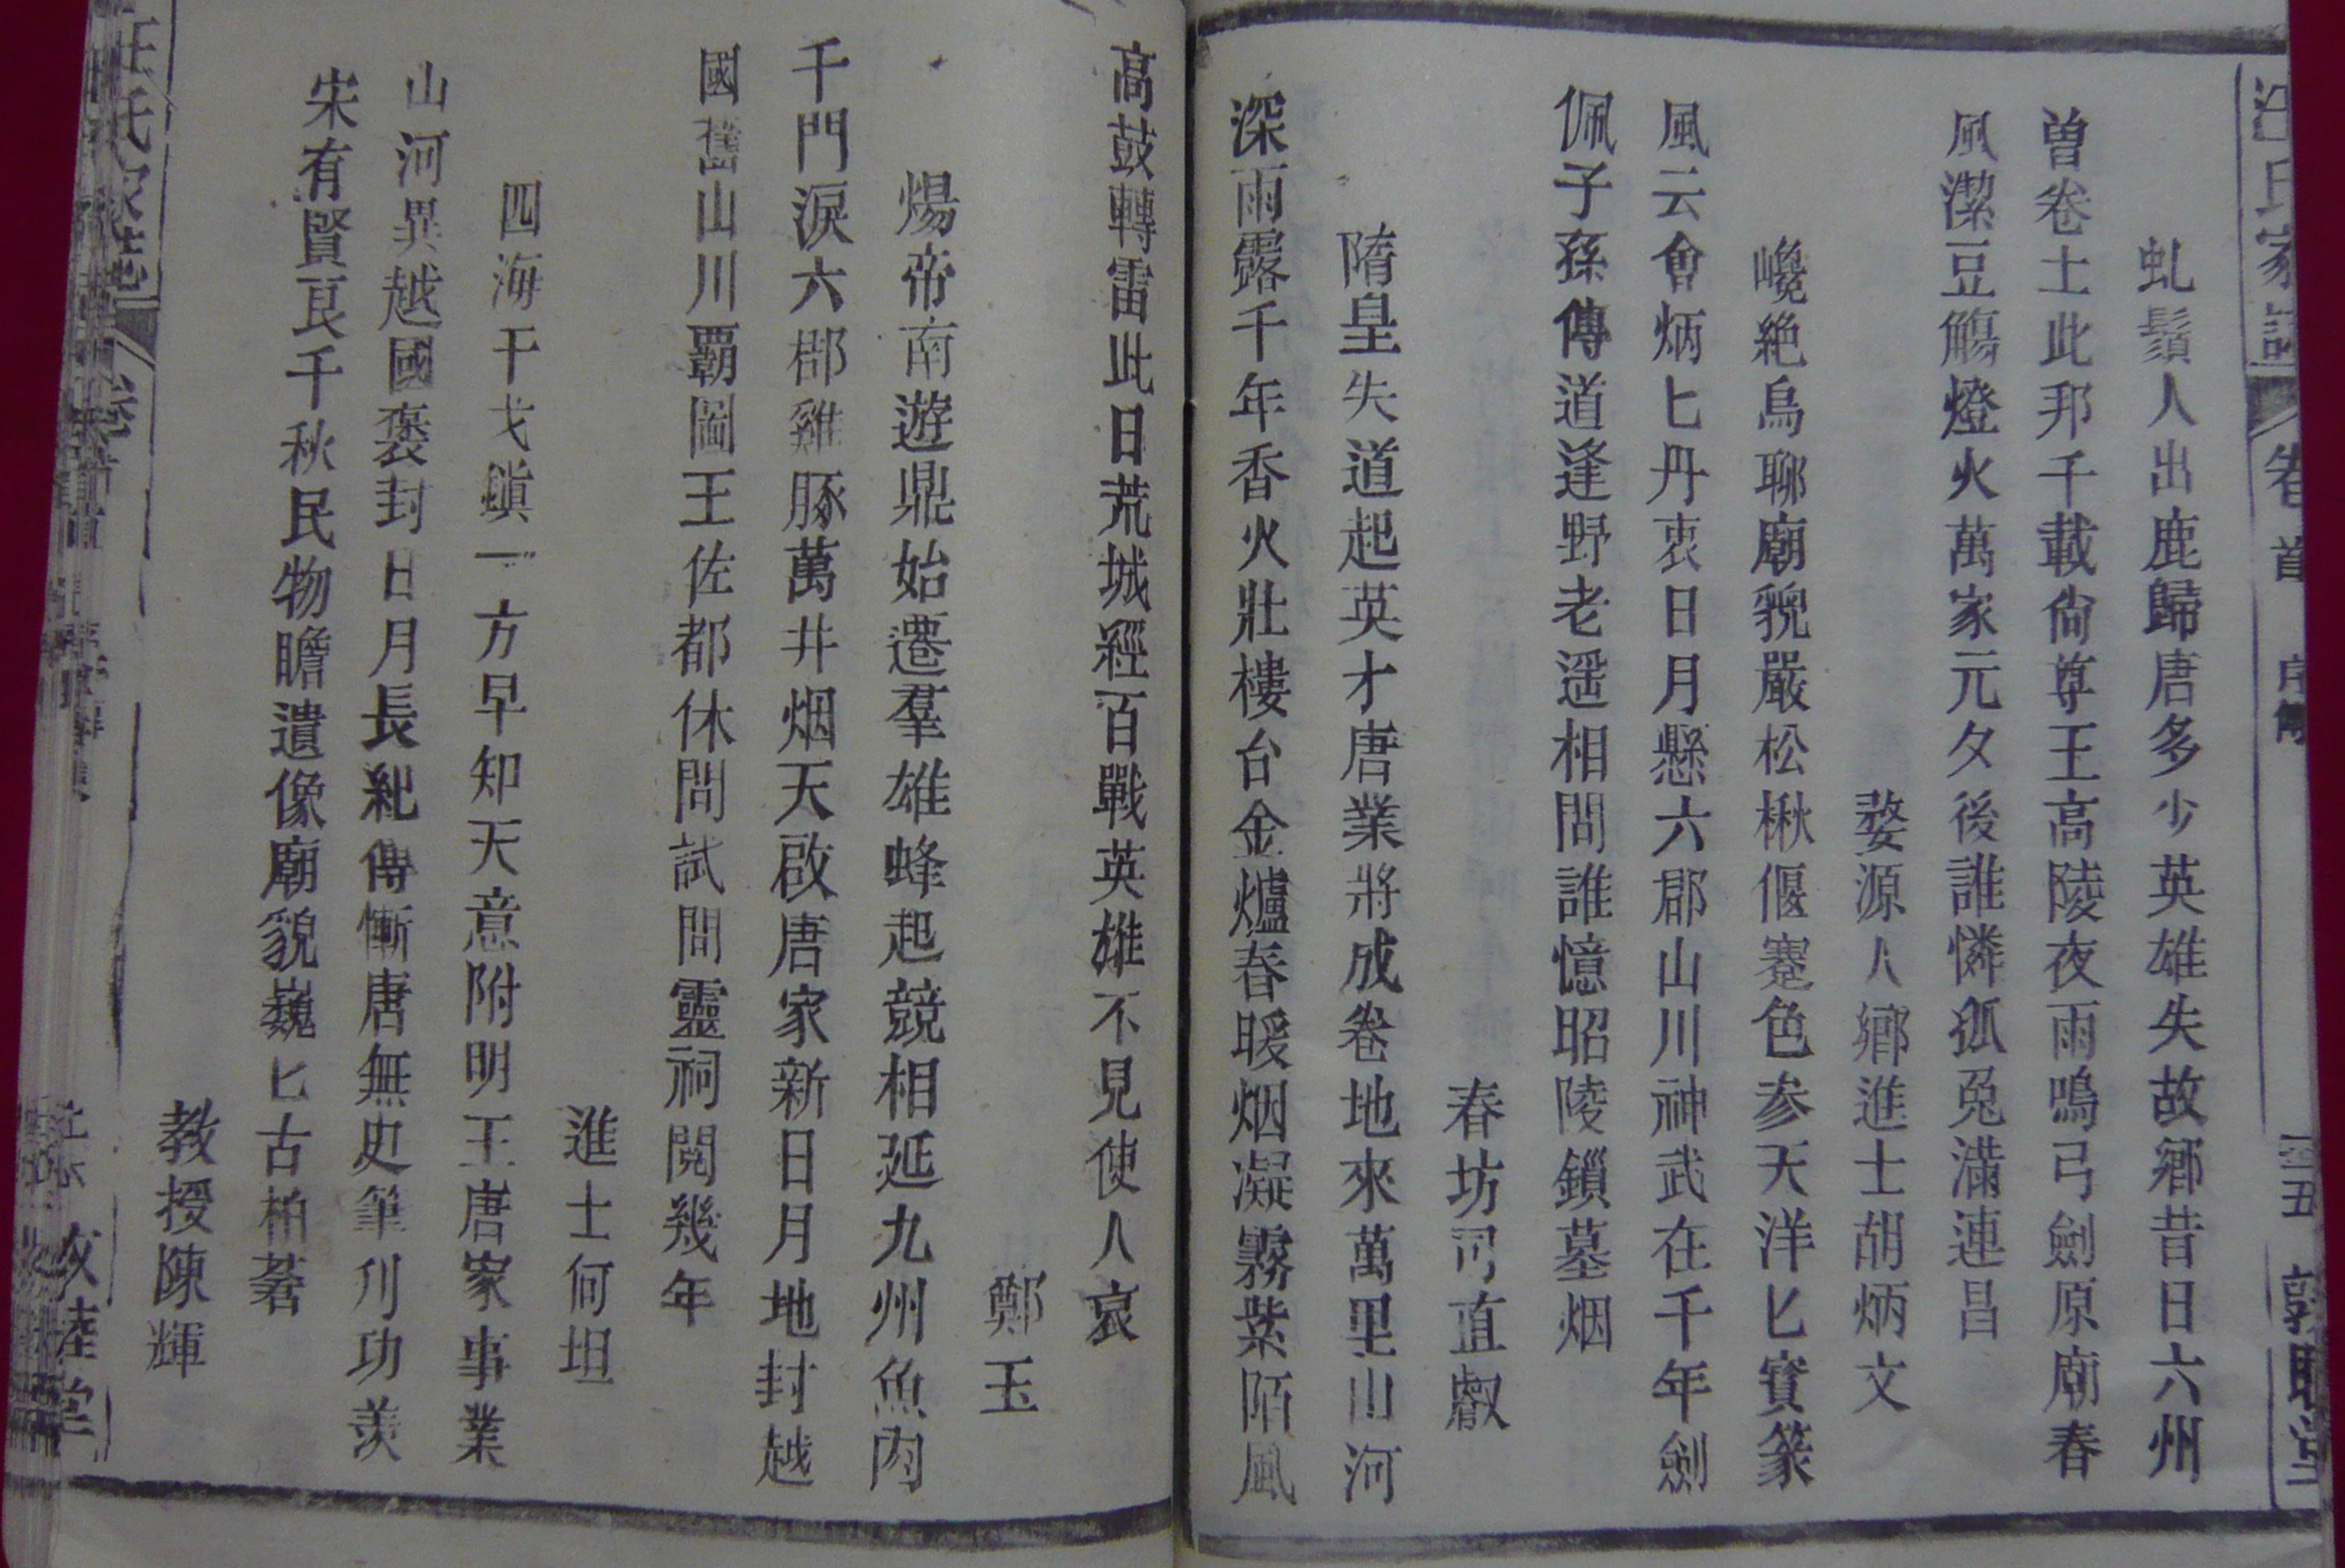 汪氏家譜 卷首 序傳 五 敦睦堂
虬鬚人出鹿歸唐多少英雄失故鄉昔日六州
曽卷土此邦千載尙尊王高陵夜雨鳴弓劍原廟春
風潔豆觴燈火萬家元夕後誰憐狐兎滿連昌
婺源人鄉進士胡炳文
巉絶鳥聊廟貌嚴松楸偃蹇色参天洋匕寶篆
風云會炳匕丹衷日月懸六郡山川神武在千年劍
佩子孫傳道逢野老遥相問誰憶昭陵鎻墓烟
春坊司直㕡
隋皇失道起英才唐業將成卷地來萬里山河
深雨露千年香火壯樓台金爐春暖烟凝霧紫陌風
高鼓轉雷此日荒城經百戰英雄不見使人哀
鄭玉
煬帝南遊鼎始遷羣雄蜂起競相延九州魚肉
千門淚六郡雞豚萬井烟天啟唐家新日月地封越
國舊山川覇圖王佐都休問試問靈祠閱幾年
進士何坦
四海干戈鎮一方早知天意附明王唐家事業
山河異越國褒封日月長紀傳慚唐無史筆刋功羡
宋有賢良千秋民物瞻遺像廟貌巍匕古柏蒼
教授陳輝
汪氏家譜 卷 敦睦堂